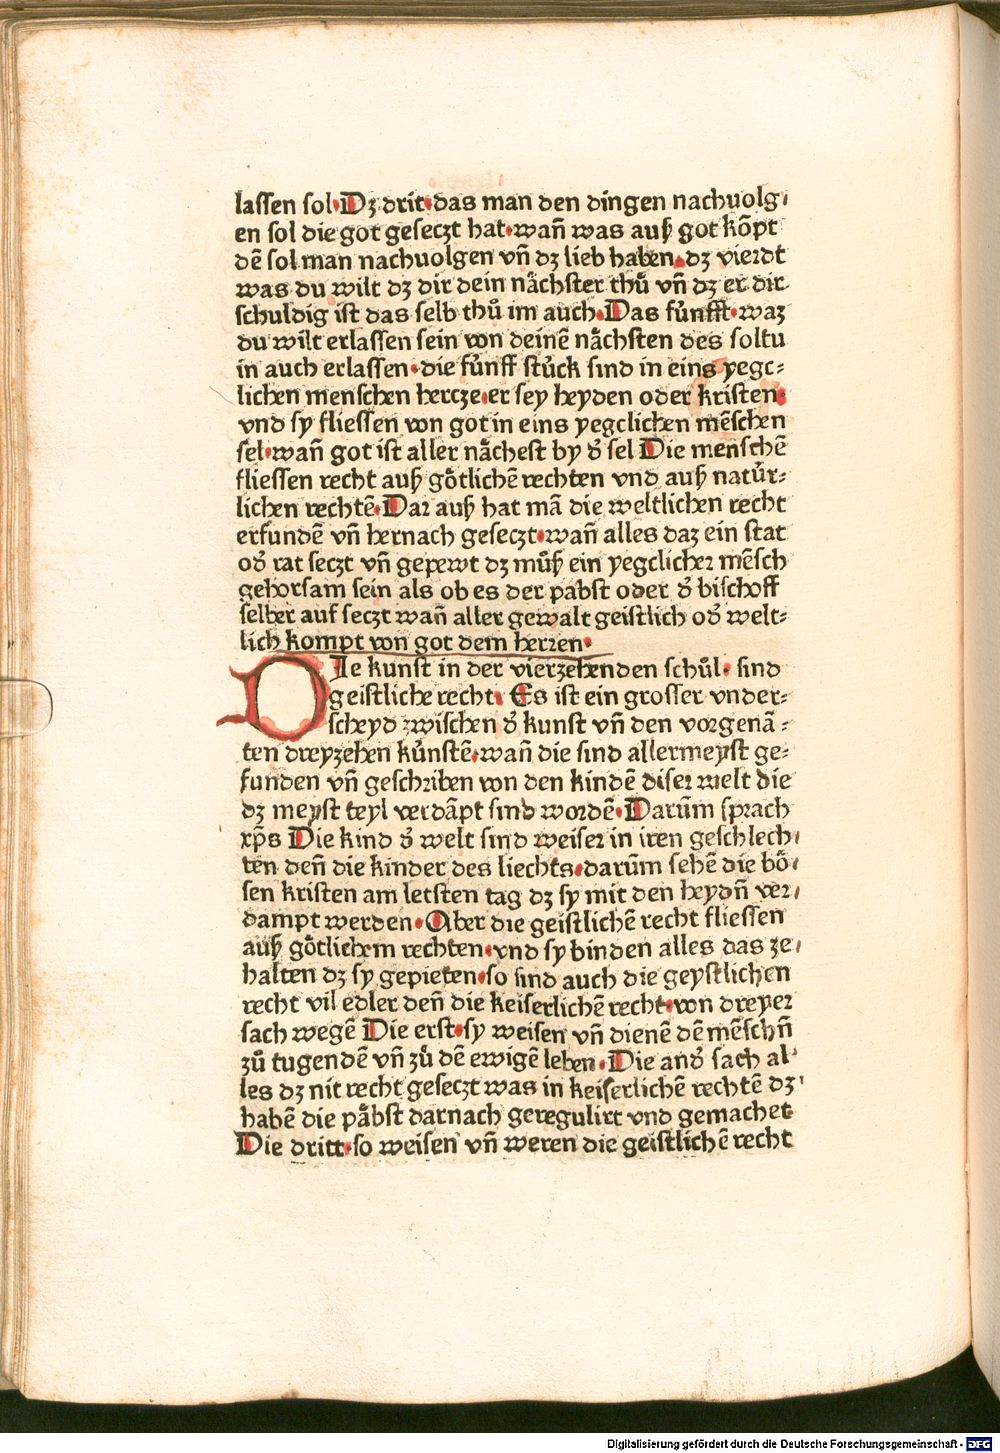 lassen sol·Dz drit·das man den dingen nachuolg⸗
en sol die got geseczt hat·wañ was auß got kōpt
dē sol man nachuolgen vñ dz lieb haben·dz vierdt
was du wilt dz dir dein nåchster thů vñ dz er dir
schuldig ist das selb thů im auch·Das fúnfft·waz
du wilt erlassen sein von deinē nåchsten des soltu
in auch erlassen·die fúnff stúck sind in eins yegc⸗
lichen menschen hercze·er sey heyden oder kristen·
vnd sy fliessen von got in eins yegclichen mēschen
sel·wañ got ist aller nåchest by d̉ sel Die menschē
fliessen recht auß gŏtlichē rechten vnd auß natúr⸗
lichen rechtē·Dar auß hat mā die weltlichen recht
erfundē vñ hernach geseczt·wañ alles daz ein stat
od̉ rat seczt vñ gepewt dz můß ein yegclicher mēsch
gehorsam sein als ob es der pabst oder d̉ bischoff
selber auf seczt wañ aller gewalt geistlich od̉ welt⸗
lich kompt von got dem herren·
DIe kunst in der vierzehenden schůl· sind
geistliche recht· Es ist ein grosser vnder⸗
scheyd zwischen d̉ kunst vñ den vorgenā⸗
ten dreyzehen kúnstē·wañ die sind allermeyst ge⸗
funden vñ geschriben von den kindē diser welt die
dz meyst teyl verdāpt sind wordē·Darūm sprach
xp̄s Die kind d̉ welt sind weiser in iren geschlech⸗
ten deñ die kinder des liechts·darūm sehē die bŏ⸗
sen kristen am letsten tag dz sy mit den heydñ ver⸗
dampt werden·Aber die geistlichē recht fliessen
auß gŏtlichem rechten·vnd sy binden alles das ze⸗
halten dz sy gepieten·so sind auch die geystlichen
recht vil edler deñ die keiserlichē recht·von dreyer
sach wegē Die erst·sy weisen vñ dienē dē mēschñ
zů tugendē vñ zů dē ewigē leben·Die and̉ sach al⸗
les dz nit recht geseczt was in keiserlichē rechtē dz
habē die påbst darnach geregulirt vnd gemachet
Die dritt·so weisen vñ weren die geistlichē recht
Digitalisierung gefördert durch die Deutsche Forschungsgemeinschaft - DFG